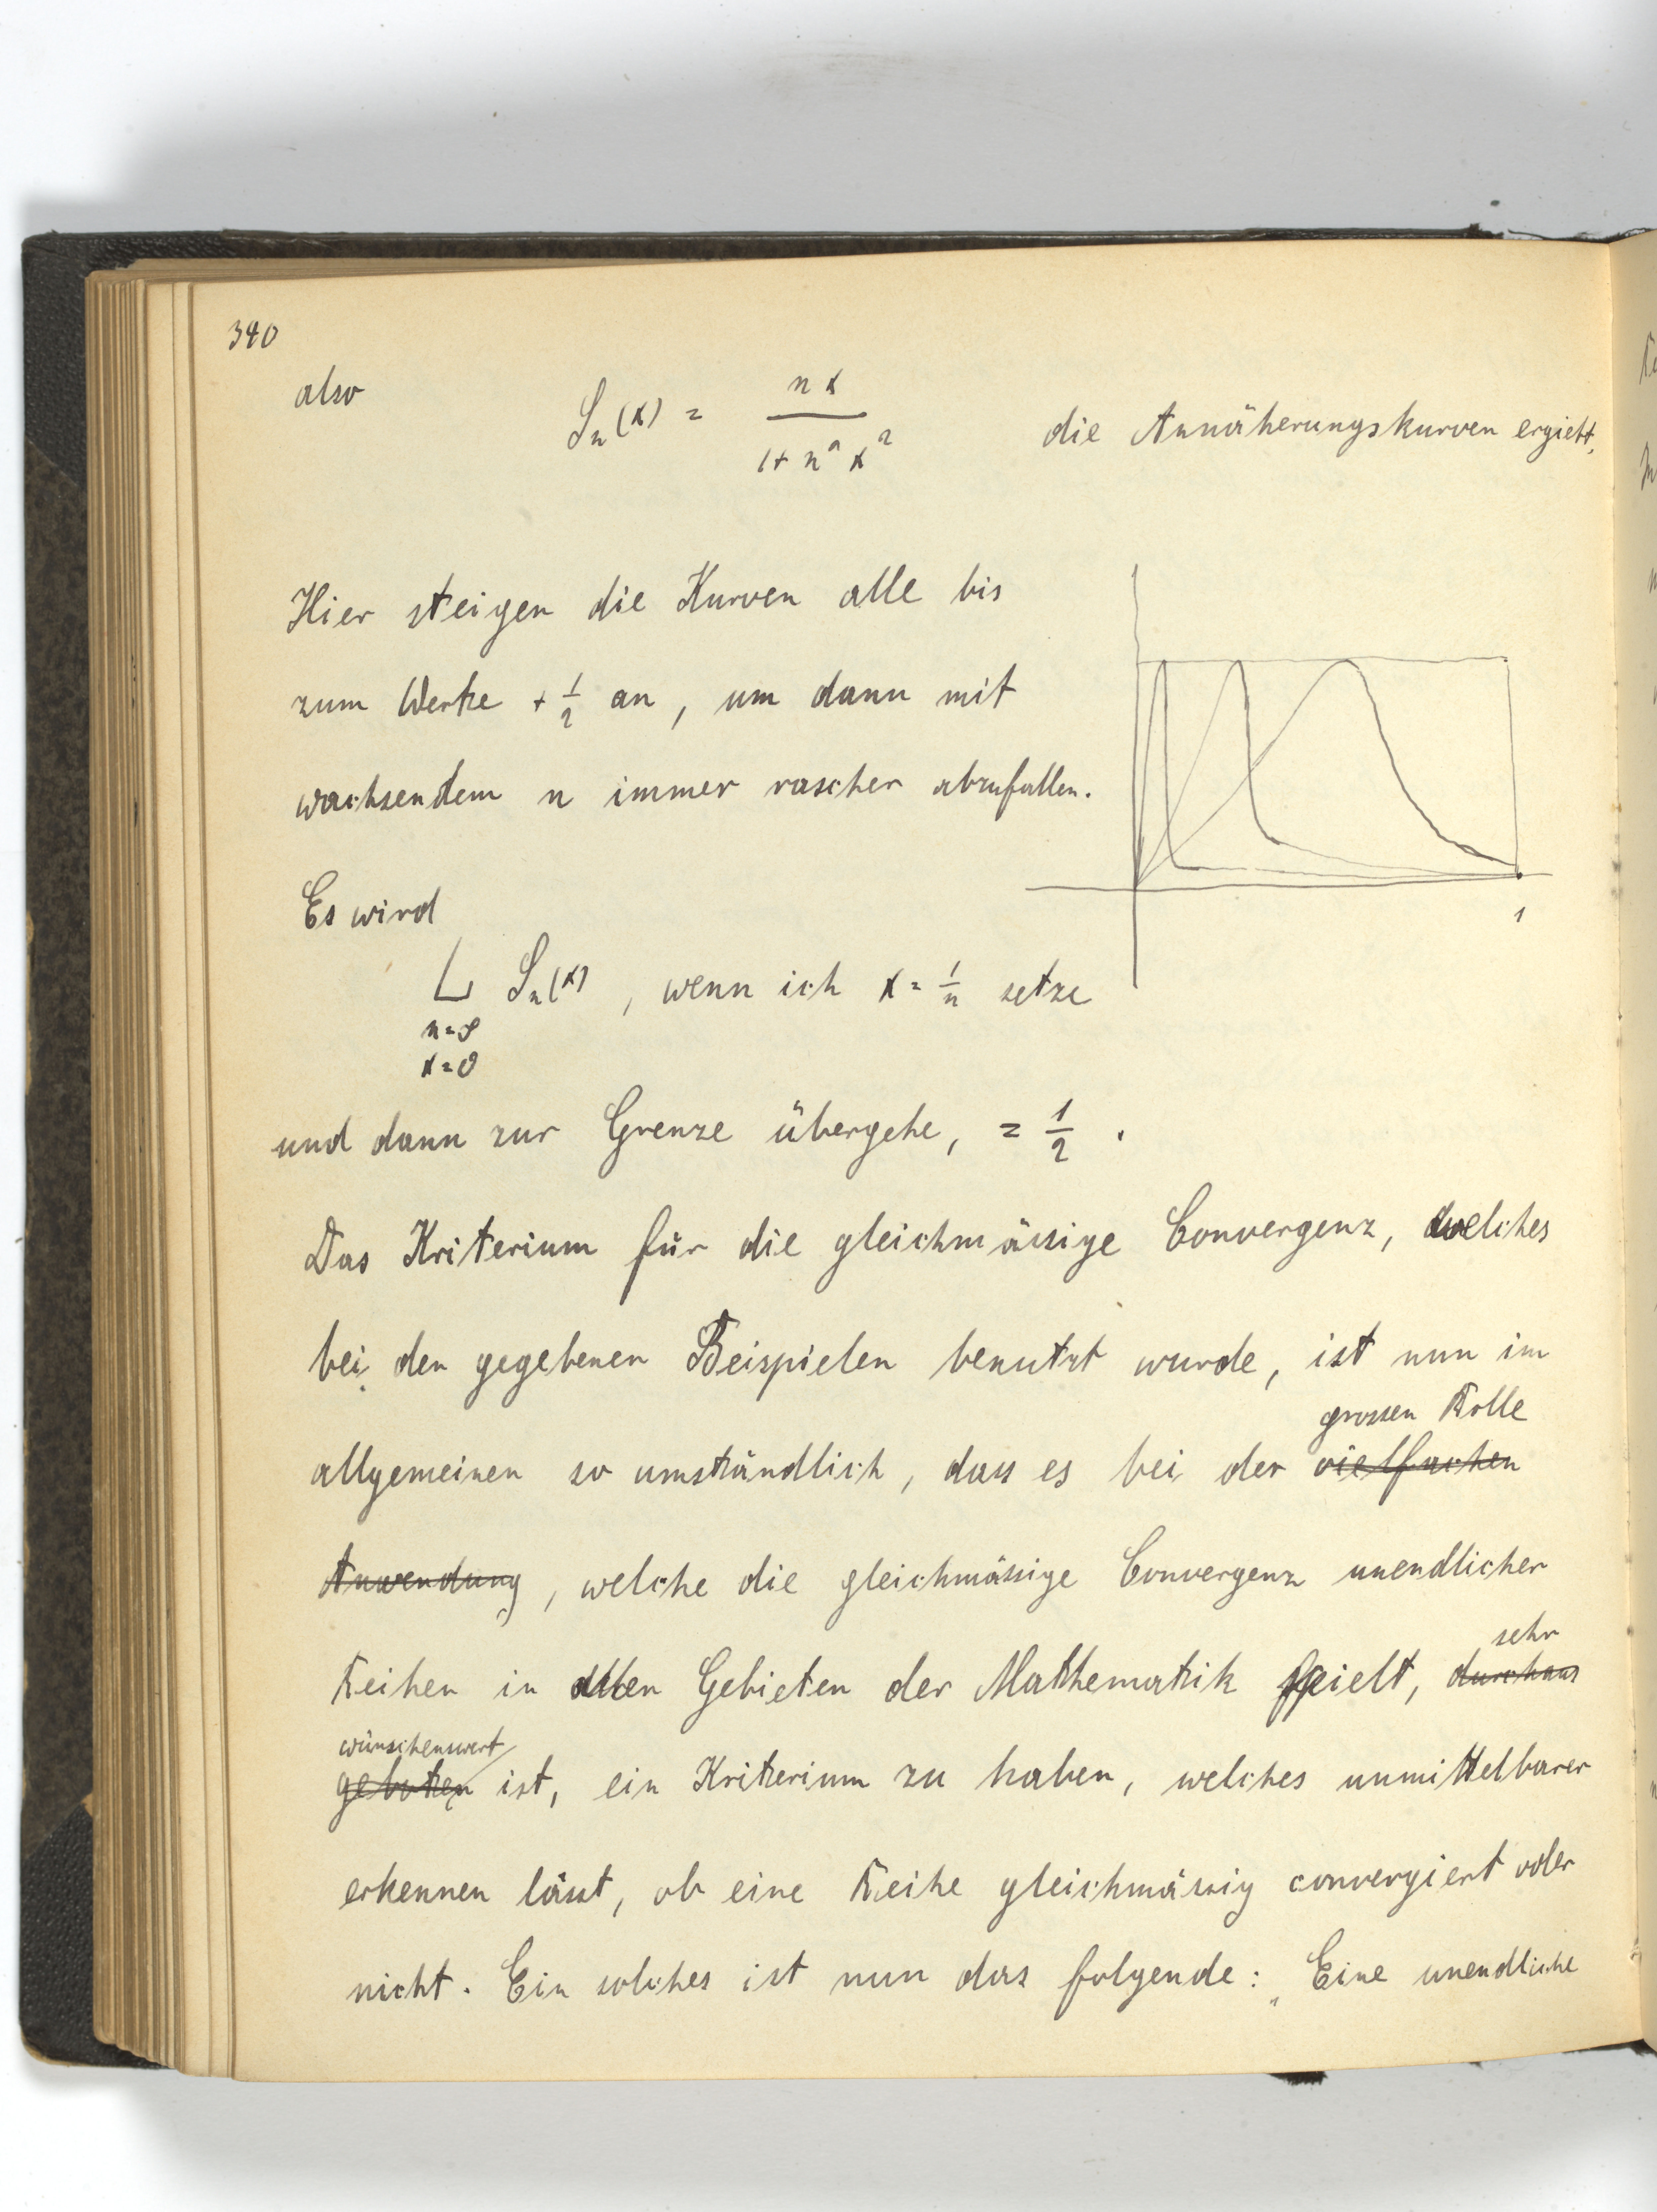 340
also S_n(x) = \frac{nx}{1+n^2x^2} die Annäherungskurven ergiebt.
Hier steigen die Kurven alle bis
zum Werte + 1/2 an, um dann mit
wachsendem n immer rascher abzufallen.
1
Es wird
L S_n(x), wenn ich x = 1/n setze
n=∞
x=0
und dann zur Grenze übergehe, = 1/2.
Das Kriterium für die gleichmässige Convergenz, welches
bei den gegebenen Beispielen benutzt wurde, ist nun im
grossen Rolle
allgemeinen so umständlich, dass es bei der vielfachen
Anwendung, welche die gleichmässige Convergenz unendlicher
sehr
Reihen in allen Gebieten der Mathematik spielt, durchaus
wünschenswert
geboten ist, ein Kriterium zu haben, welches unmittelbarer
erkennen lässt, ob eine Reihe gleichmässig convergiert oder
nicht. Ein solches ist nun das folgende: „Eine unendliche